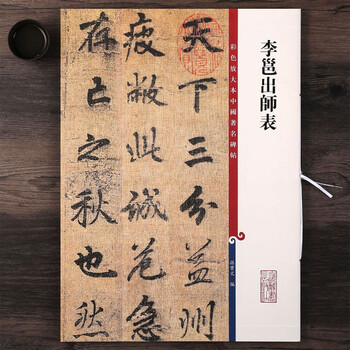 李邕出師表
彩色放大本中國著名碑帖
孫寶文 編
天下三分益州
疲敝此誠危急
存亡之秋也然